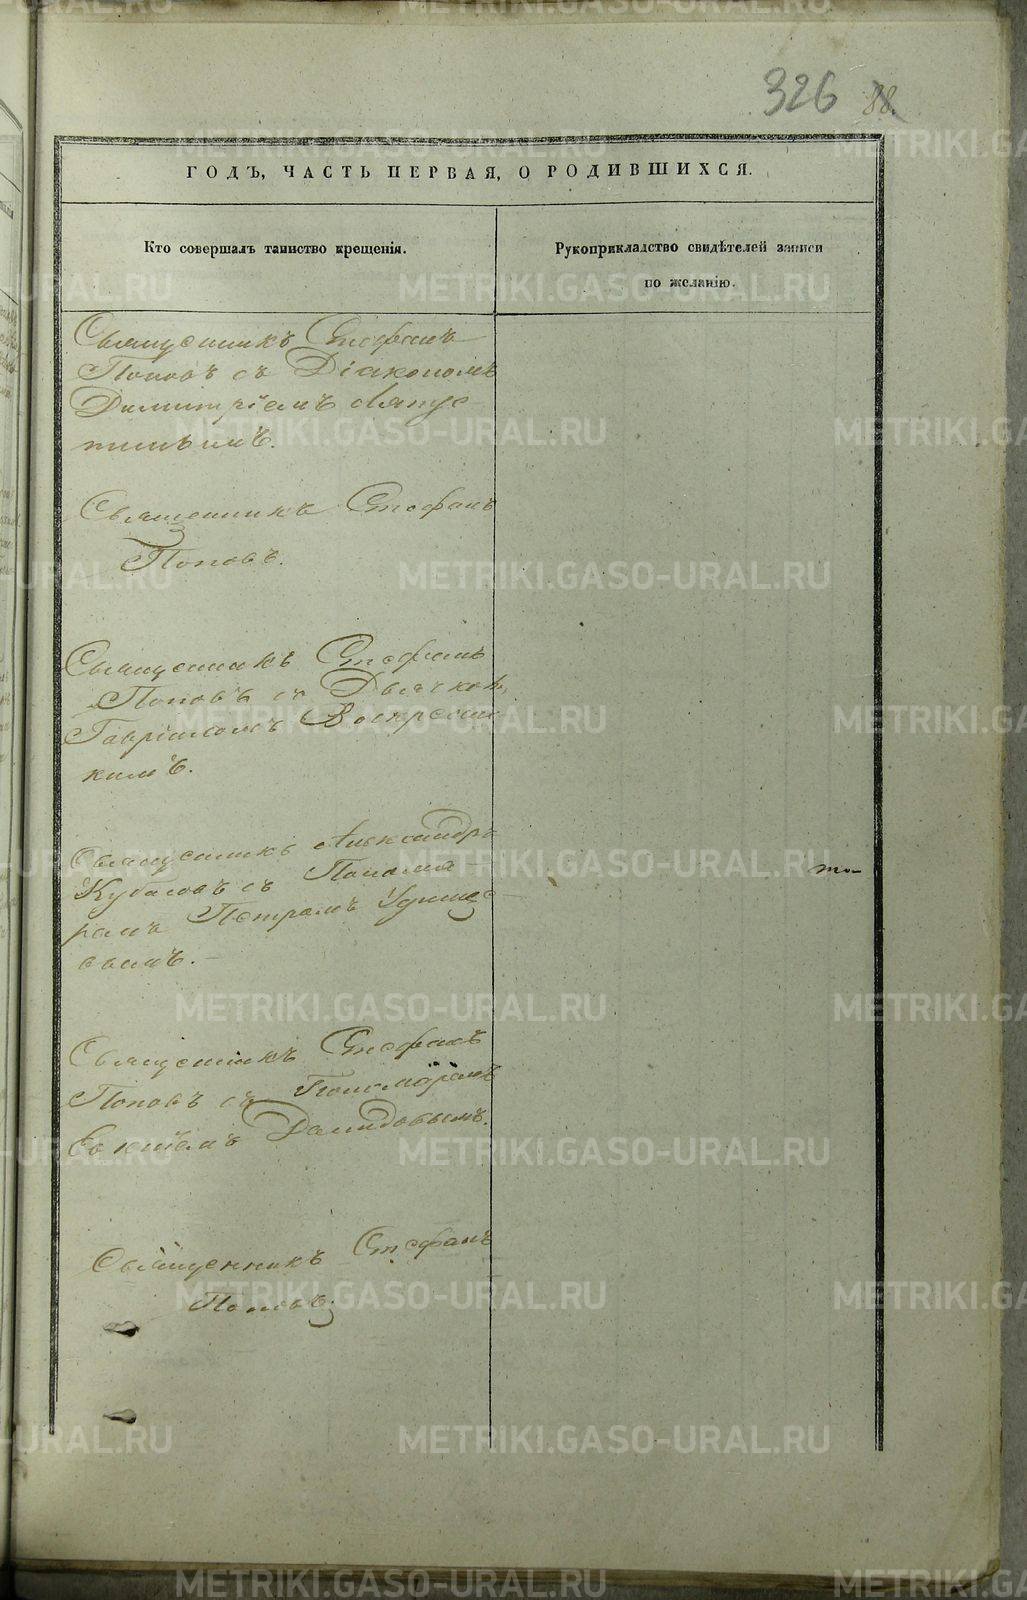 326 88.
ГОДЪ, ЧАСТЬ ПЕРВАЯ, О РОДИВШИХСЯ.
Кто совершалъ таинство крещенія.
Рукоприкладство свидѣтелей записи
по желанію.
Священникъ Стефанъ
Поповъ съ Діакономъ
Димитріемъ
Священникъ Стефанъ
Поповъ.
Священникъ Стефанъ
Поповъ съ Дьячком
Гавріиломъ Воскресенс
кимъ.
Священникъ Александръ
съ Понома
ремъ Петромъ
вымъ.
то
Священникъ Стефанъ
Поповъ съ Пономаремъ
Демидовымъ.
Священникъ Стефанъ
Поповъ
METRIKI.GASO-URAL.RU